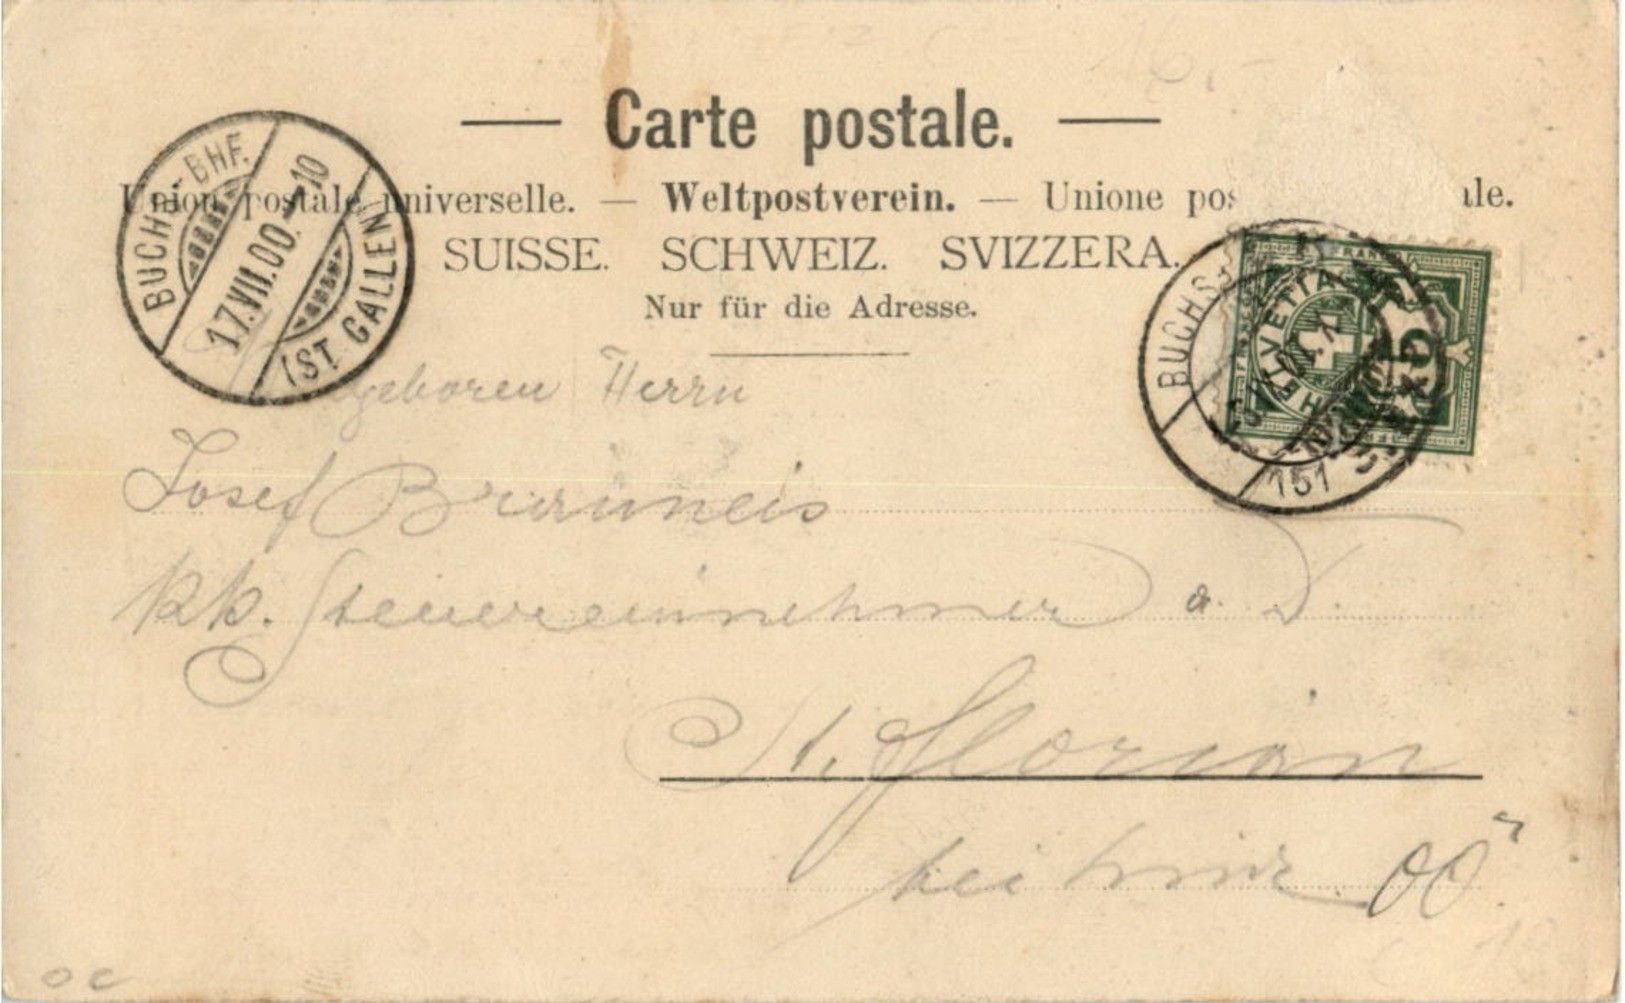 — Carte postale. —
Union postale universelle. — Weltpostverein. — Unione pos ale.
SUISSE. SCHWEIZ. SVIZZERA.
Nur für die Adresse.
BUCHS-BHF.
17.VII.00.-10
(ST GALLEN)
BUCHS
151
HELVETIA
FRANCO
5
geboren Herrn
Josef
kk. Steuereinnehmer a. D.
St. Florian
bei Linz OÖ